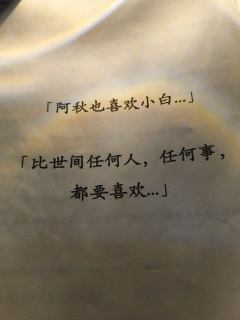 「阿秋也喜欢小白...」
「比世间任何人，任何事，
都要喜欢...」